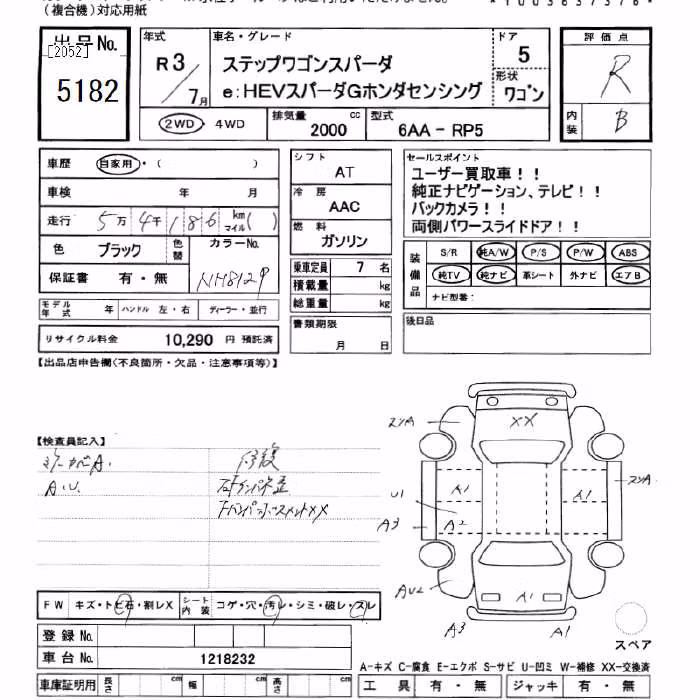 (複合機)対応用紙
出品No.
[2052]
5182
年式
R3
7月
車名・グレード
ステップワゴンスパーダ
e:HEVスパーダGホンダセンシング
ドア
5
形状
ワゴン
評価点
R
内装
B
2WD・4WD
排気量
2000 cc
型式
6AA-RP5
車歴 自家用・( )
車検 年 月
走行 5万4千186 km マイル( )
色 ブラック 色替 カラーNo.
保証書 有・無 NH812P
モデル年式 年 ハンドル 左・右 ディーラー・並行
リサイクル料金 10,290 円 預託済
シフト AT
冷房 AAC
燃料 ガソリン
乗車定員 7 名
積載量 kg
総重量 kg
書類期限
月 日
セールスポイント
ユーザー買取車!!
純正ナビゲーション、テレビ!!
バックカメラ!!
両側パワースライドドア!!
装備品
S/R 純A/W P/S P/W ABS
純TV 純ナビ 革シート 外ナビ エアB
ナビ型番:
後日品
【出品店申告欄(不良箇所・欠品・注意事項等)】
【検査員記入】
A.U.
修復
XX
スリA
U1
A3
A1
A2
A1
スリA
AU2
A1
A3
A1
スペア
FW キズ・トビ石・割レX
シート内装 コゲ・穴・汚レ・シミ・破レ・スレ
登録No.
車台No. 1218232
A-キズ C-腐食 E-エクボ S-サビ U-凹ミ W-補修 XX-交換済
車庫証明用 長さ cm 幅 cm 高さ cm
工具 有・無 ジャッキ 有・無